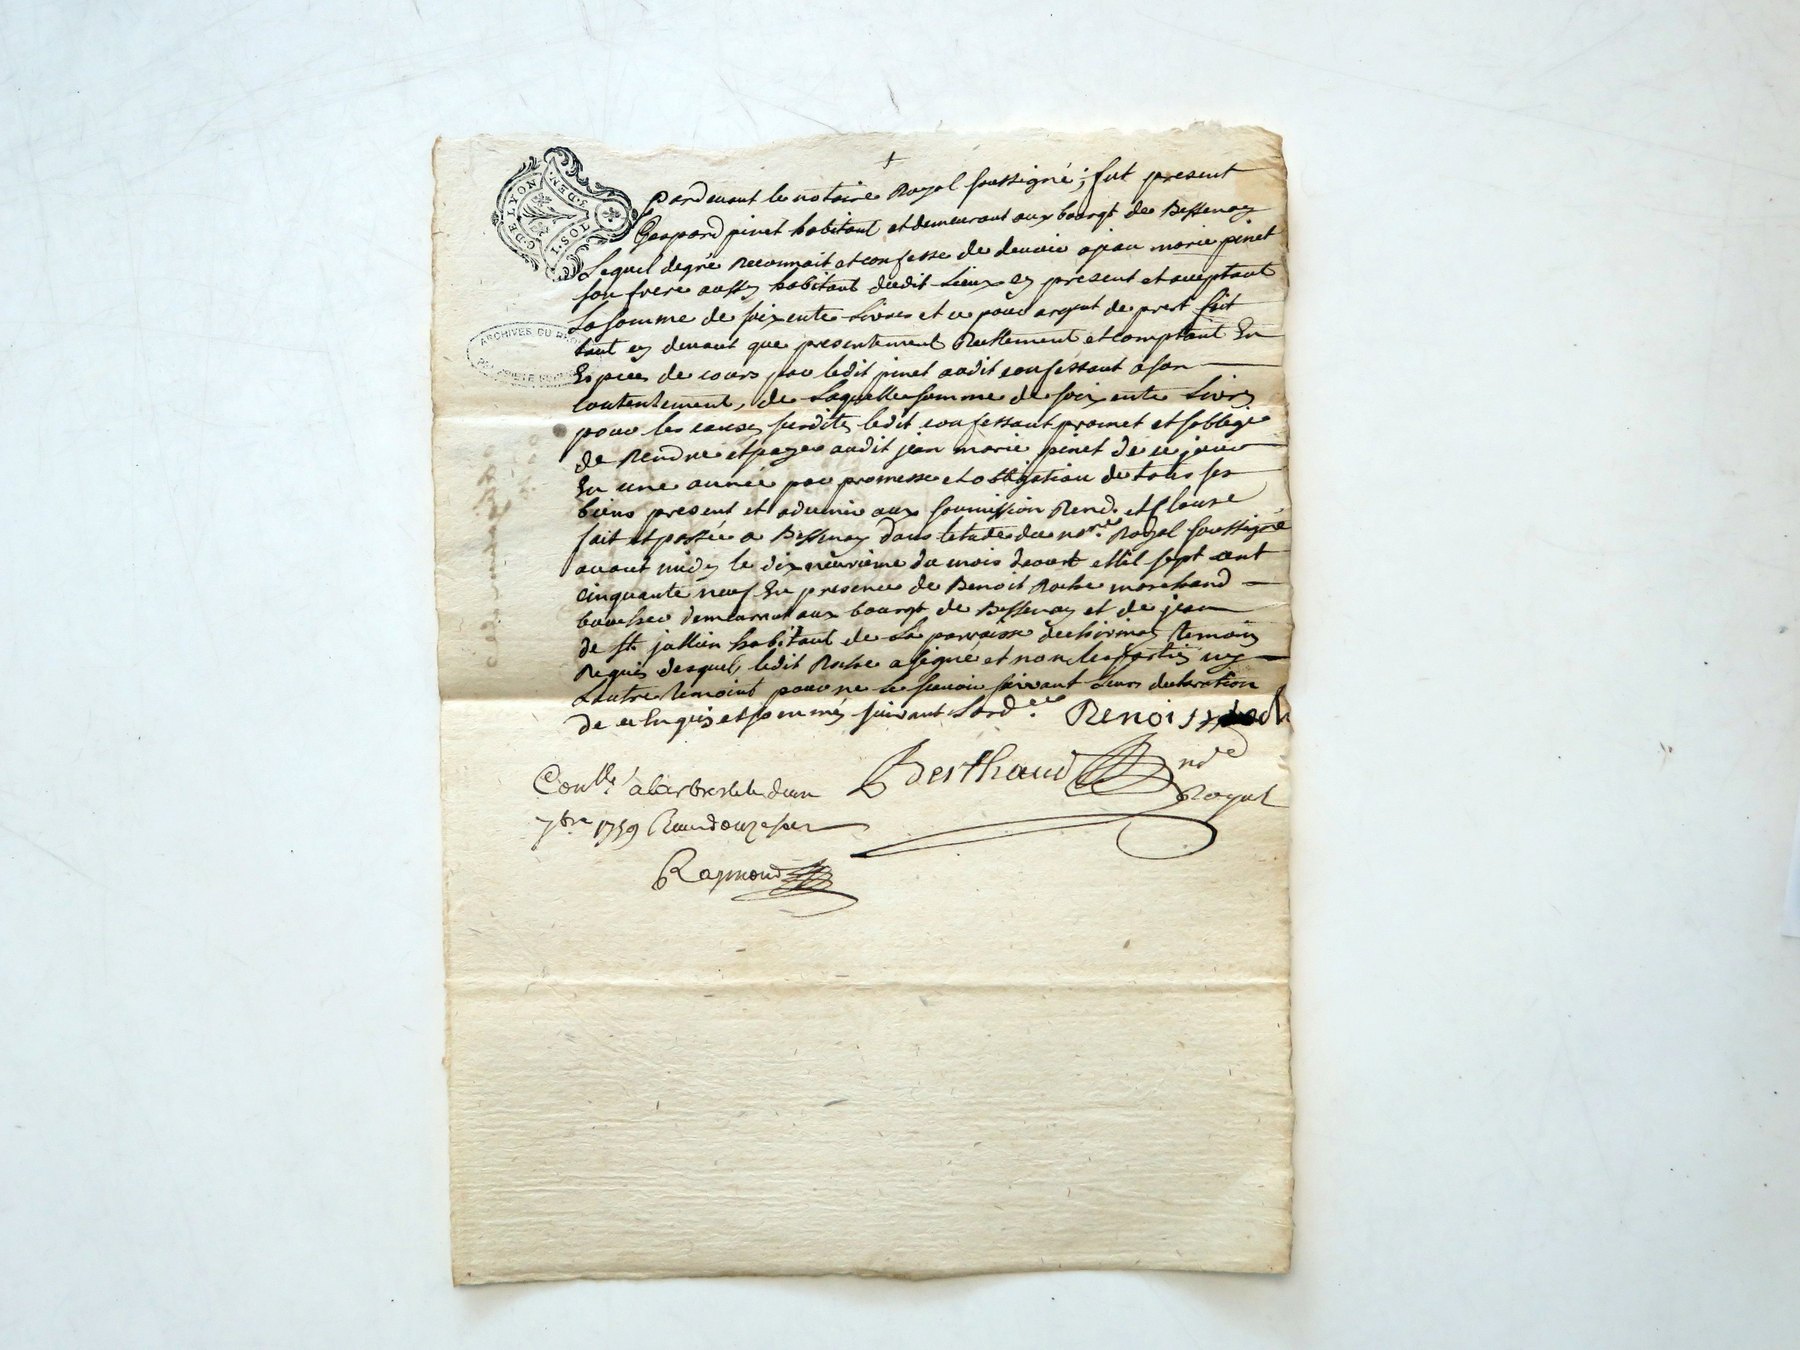 G. DE LYON
3.DEN.
1.SOL
ARCHIVES DU RHONE
pardevant le notaire Royal soussigné ; fut present
Gaspard pinet habitant et demeurant aux bourgt de Bessenay
Lequel degré Reconnait et confesse de devoir a jean marie pinet
son frere aussy habitant dudit Lieux cy present et aceptant
La somme de soixente Livres et ce pour argent de prest fait
tant cy devant que presentement Reellement et comptant En
Especes de cours par ledit pinet audit confessant a son
contentement, de Laquelle somme de soixente Livres
pour les causes susdites ledit confessant promet et soblige
de Rendre et payer audit jean marie pinet de ce jour
En une année par promesse et obligation de tous ses
biens present et advenir aux soumission Rend. et Clause
fait et passée a Bessenay dans letude du nore. Royal soussigné
avant midy le dix neuvieme du mois daoust Mil sept cent
cinquante neuf En presence de Benoit Roche marchand
boucher demeurant aux bourgt de Bessenay et de jean
de st. jullien habitant de La parroisse de chivinay temoins
Requis desquels ledit Roche a signé et non les parties ny
Lautre temoint pour ne le scavoir suivant Leurs declaration
de ce Enquis et sommés suivant Lordce. Renoist
Berthaud nre
Royal
Conllé a larbresle le dun
7bre 1759 Reçu douze sols
Raymond